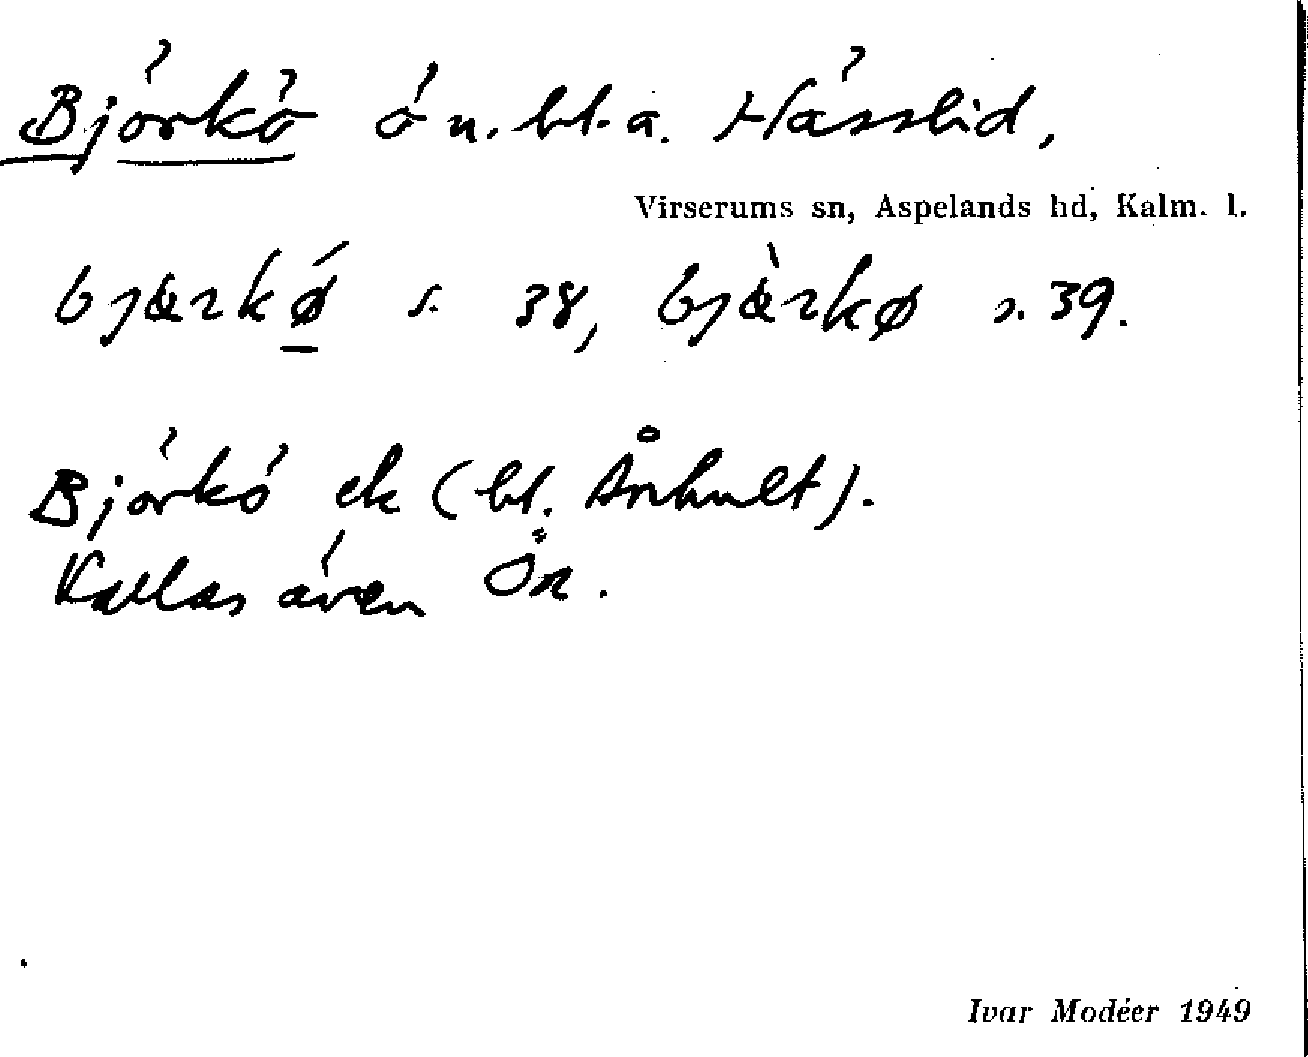 Björkö ö n. bl. a. Hässlid,
Virserums sn, Aspelands hd, Kalm. l.
bjærkǿ s. 38, bjæ̀rkø s. 39.
Björkö ek (bl. Ånhult).
Kallas även Ön.
Ivar Modéer 1949